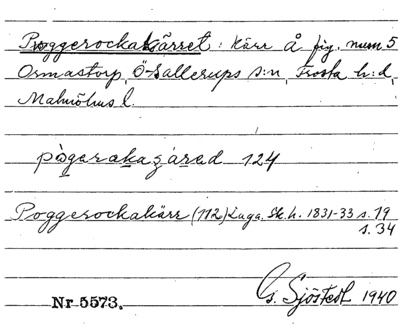 Poggerockakärret: Kärr å fig. num 5
Ormastorp, Ö-Sallerups s:n, Frosta h:d,
Malmöhus l.
pògarakaʒárad 124
Poggerockakärr (112) Laga. Sk. h. 1831-33 s. 19
s. 34
Nr 5573.
G. Sjöstedt 1940